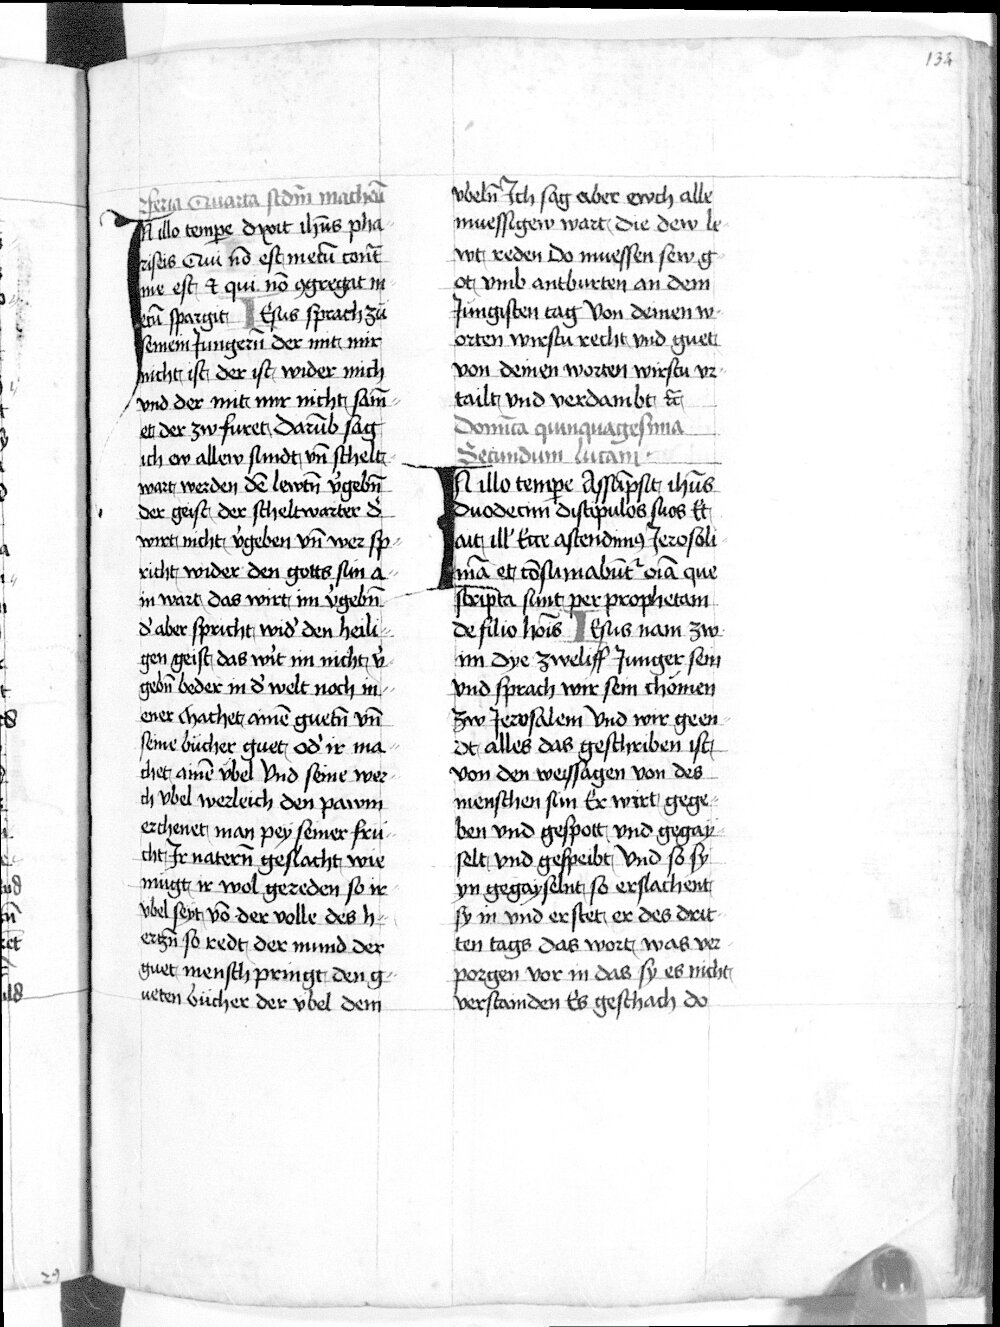 134
Feria Quarta scdm̄ matheū
IN illo tempe dixit ihūs pha⸗
riseis Qui nō est mecū cont̄
me est Et qui nō ꝯgregat m
ecū spargit IEsus sprach zū
seinem Jungern̄ der mit mir
nicht ist der ist wider mich
vnd der mit mir nicht sam̄⸗
et der zw furet Darūb sag
ich ew allew sundt vn̄ schelt⸗
wart werden dē lewtn̄ v̄gebn̄
der geist der scheltwarter d̄
wirt nicht v̄geben vn̄ wer sp⸗
richt wider den gotts sun a⸗
in wart das wirt im v̄gebn̄
d̓ aber spricht wid̓ den heili⸗
gen geist das wi̓t im nicht v̄⸗
gebn̄ beder in d̓ welt noch in⸗
ener Machet ainē guetn̄ vn̄
seine bücher guet od̓ ir ma⸗
chet ainē vbel Vnd seine wer⸗
ch vbel werleich den pawm
erchenet man pey seiner fru⸗
cht Jr natern̄ geslacht wie
mugt ir wol gereden so ir
vbel seyt vō der volle des h⸗
erczn̄ so redt der mund der
guet mensch pringt den g⸗
ueten bücher der vbel dem
vbeln̄ Ich sag aber ewch alle
muessigew wart die dew le⸗
wt reden Do muessen sew g⸗
ot vmb antburten an dem
Jungisten tag Von deinen w⸗
orten wirstu recht vnd guet
von deinen worten wirstu vr⸗
tailt vnd verdambt ꝛc̄
Domīca quinquagesima
Secundum lucam
IN illo tempe Assūpsit ihūs
duodecim discipulos suos Et
ait ill̓ Ecce ascendimꝰ Jerosoli⸗
mā et cōsumabūt᷑ oīa que
scripta sunt per prophetam
de filio hoīs IEsus nam zw
im dye zweliff Junger sein
vnd sprach wir sein chömen
zw Jerosalem Vnd wir geen⸗
dt alles das geschriben ist
von den weissagen von des
menschen sun Er wirt gege⸗
ben vnd gespott vnd gegay⸗
selt vnd gespeibt Vnd so sy
yn gegayselnt so erslachent
sy in vnd erstet er des drit⸗
ten tags das wort was ver⸗
porgen vor in das sy es nicht
verstamden Es geschach do
29